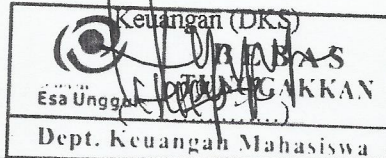 Keuangan (DKS)
BEBAS
TUNGGAKKAN
Esa Unggul
(..................)
Dept. Keuangan Mahasiswa